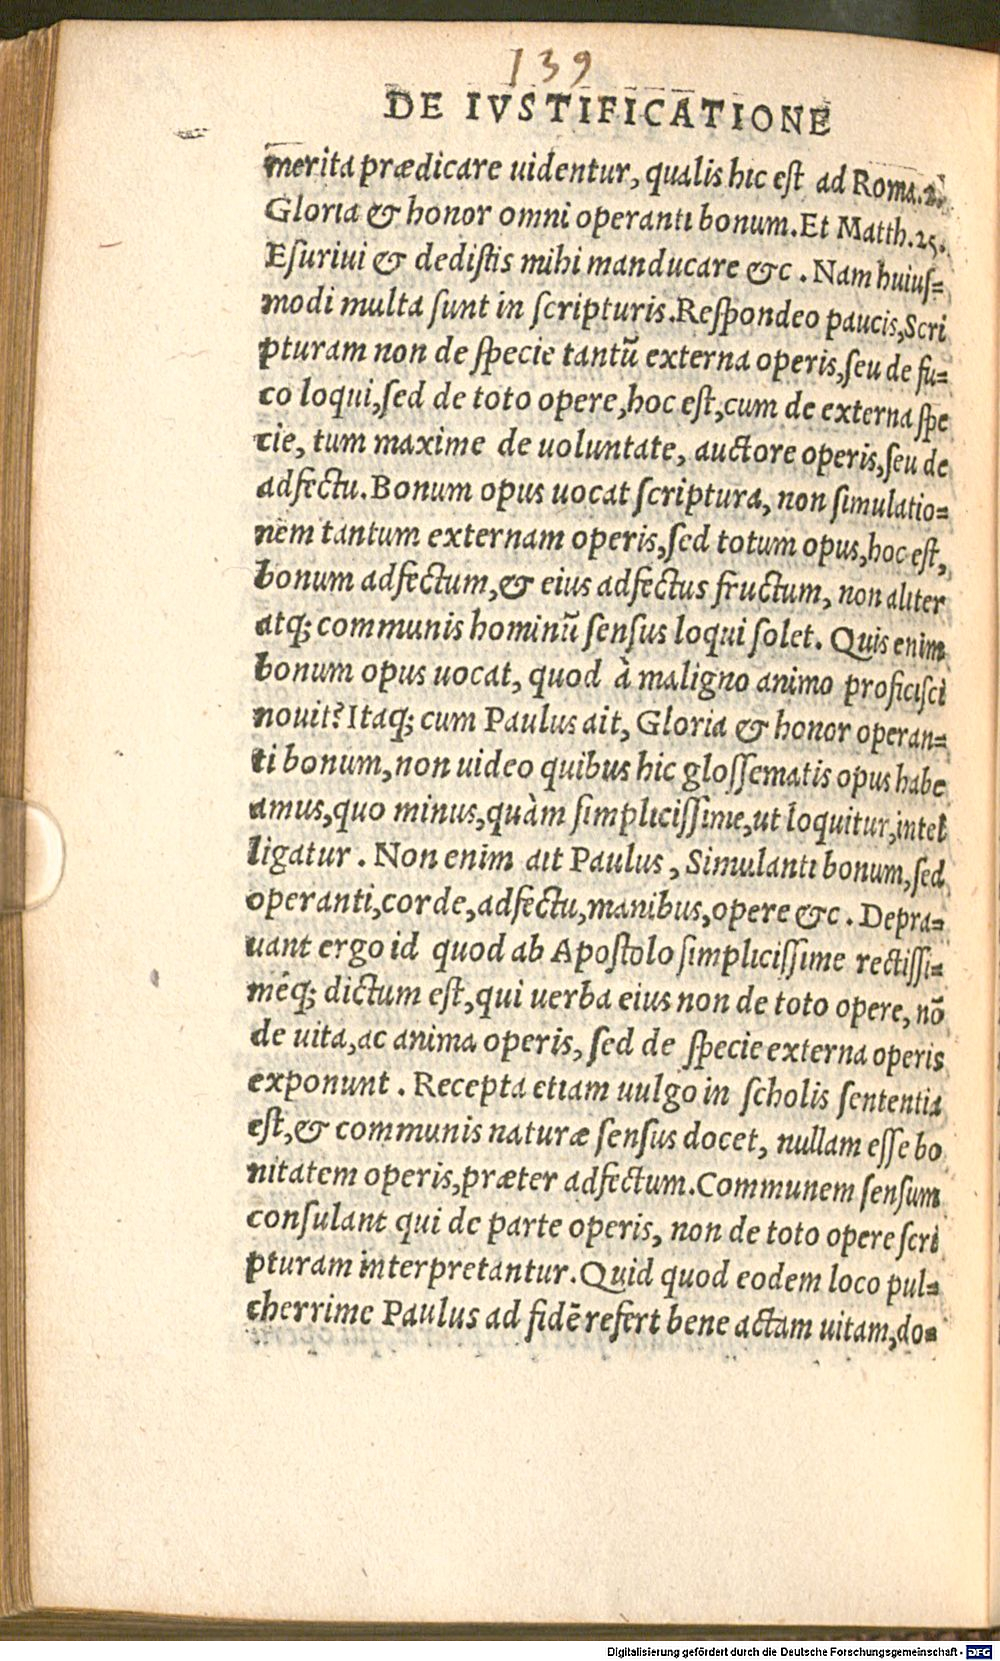 139
DE IVSTIFICATIONE
merita prædicare uidentur, qualis hic eſt ad Roma.2.
Gloria & honor omni operanti bonum. Et Matth.25.
Eſuriui & dediſtis mihi manducare &c. Nam huiuſ=
modi multa ſunt in ſcripturis. Reſpondeo paucis, Scri
pturam non de ſpecie tantũ externa operis, ſeu de fu=
co loqui, ſed de toto opere, hoc eſt, cum de externa ſpe
cie, tum maxime de uoluntate, auctore operis, ſeu de
adfectu. Bonum opus uocat ſcriptura, non ſimulatio=
nem tantum externam operis, ſed totum opus, hoc eſt,
bonum adfectum, & eius adfectus fructum, non aliter
atq; communis hominũ ſenſus loqui ſolet. Quis enim
bonum opus uocat, quod à maligno animo proficiſci
nouit? Itaq; cum Paulus ait, Gloria & honor operan=
ti bonum, non uideo quibus hic gloſſematis opus habe
amus, quo minus, quàm ſimpliciſſime, ut loquitur, intel
ligatur. Non enim ait Paulus, Simulanti bonum, ſed
operanti, corde, adfectu, manibus, opere &c. Depra=
uant ergo id quod ab Apoſtolo ſimpliciſſime rectiſſi=
méq; dictum eſt, qui uerba eius non de toto opere, nõ
de uita, ac anima operis, ſed de ſpecie externa operis
exponunt. Recepta etiam uulgo in ſcholis ſententia
eſt, & communis naturæ ſenſus docet, nullam eſſe bo
nitatem operis, præter adfectum. Communem ſenſum
conſulant qui de parte operis, non de toto opere ſcri
pturam interpretantur. Quid quod eodem loco pul=
cherrime Paulus ad fidẽ refert bene actam uitam, do=
Digitalisierung gefördert durch die Deutsche Forschungsgemeinschaft - DFG